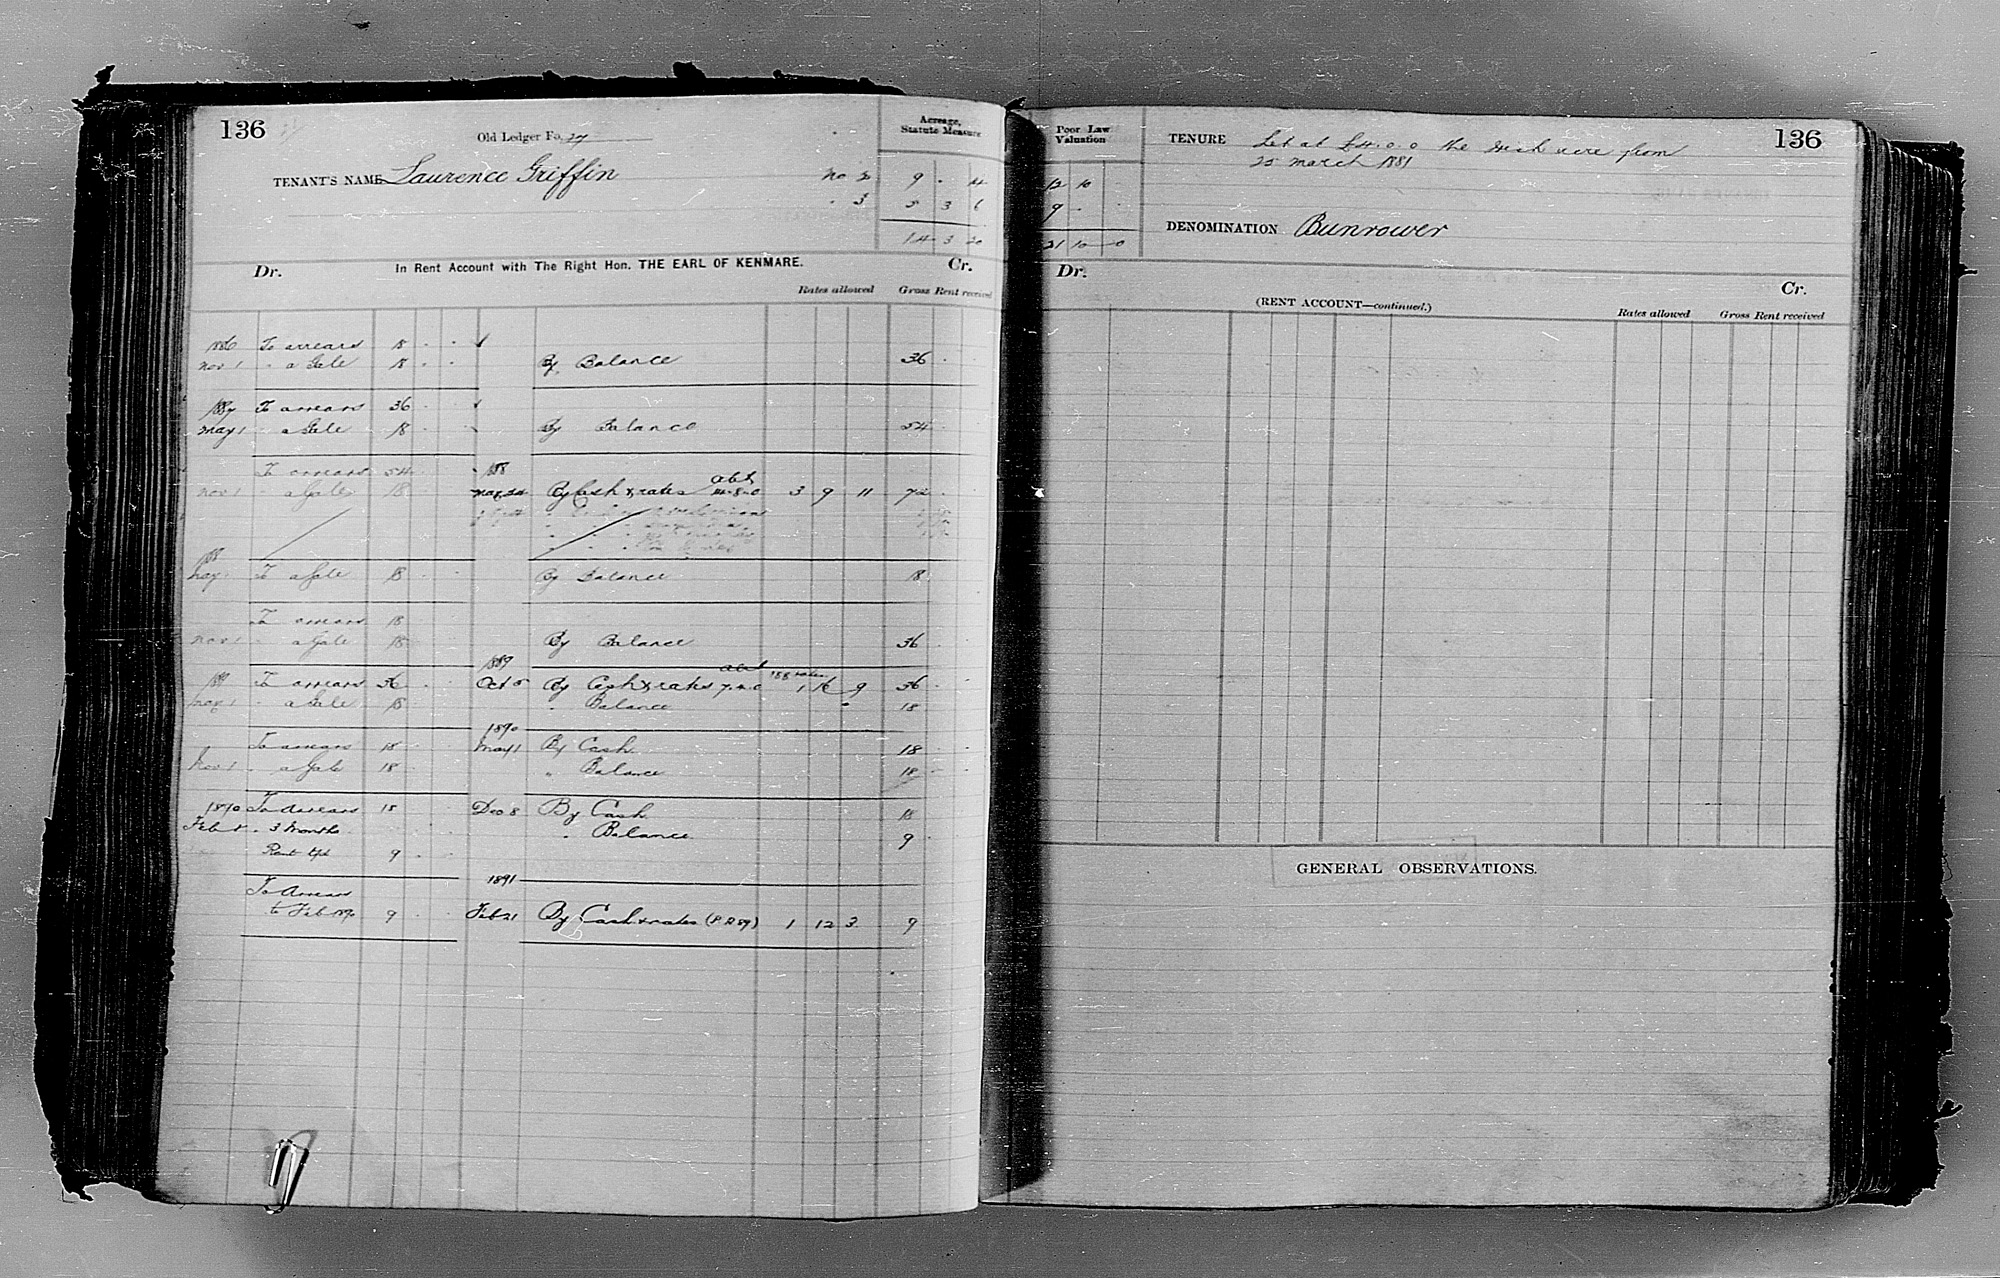 136
Old Ledger Fo. 27
Acreage, Statute Measure
TENANT'S NAME Laurence Griffin
No 2 9 . 14
. 3 5 3 6
14 3 20
Dr. In Rent Account with The Right Hon. THE EARL OF KENMARE. Cr.
Rates allowed Gross Rent received
1886 To arrears 18 . .
Nov 1 " a Gale 18 . . By Balance 36 .
1887 To arrears 36 . .
May 1 " a Gale 18 . . By Balance 54 .
To arrears 54 . . 1888
Nov 1 " a Gale 18 . . By Cash & rates abt 3 9 11 72 .
1888
May 1 To a Gale 18 . . By Balance 18
To arrears 18
Nov 1 " a Gale 18 By Balance 36
1889
1889 To arrears 36 . Oct 5 By Cash & rates abt 1 16 9 36 .
May 1 " a Gale 18 " Balance 18
1890
To arrears 18 May 1 By Cash 18
Nov 1 " a Gale 18 " Balance 18
1890 To Arrears 18 Dec 8 By Cash 18
Feb 1 " 3 Months " Balance 9
Rent 9 . .
1891
To Arrears
to Feb 1890 9 Feb 21 By Cash & rates 1 12 3 9
136
Poor Law Valuation
12 10 .
9 . .
21 10 0
TENURE Let at £4.0.0 the Irish acre from
25 March 1881
DENOMINATION Bunrower
Dr. Cr.
(RENT ACCOUNT—continued.)
Rates allowed Gross Rent received
GENERAL OBSERVATIONS.